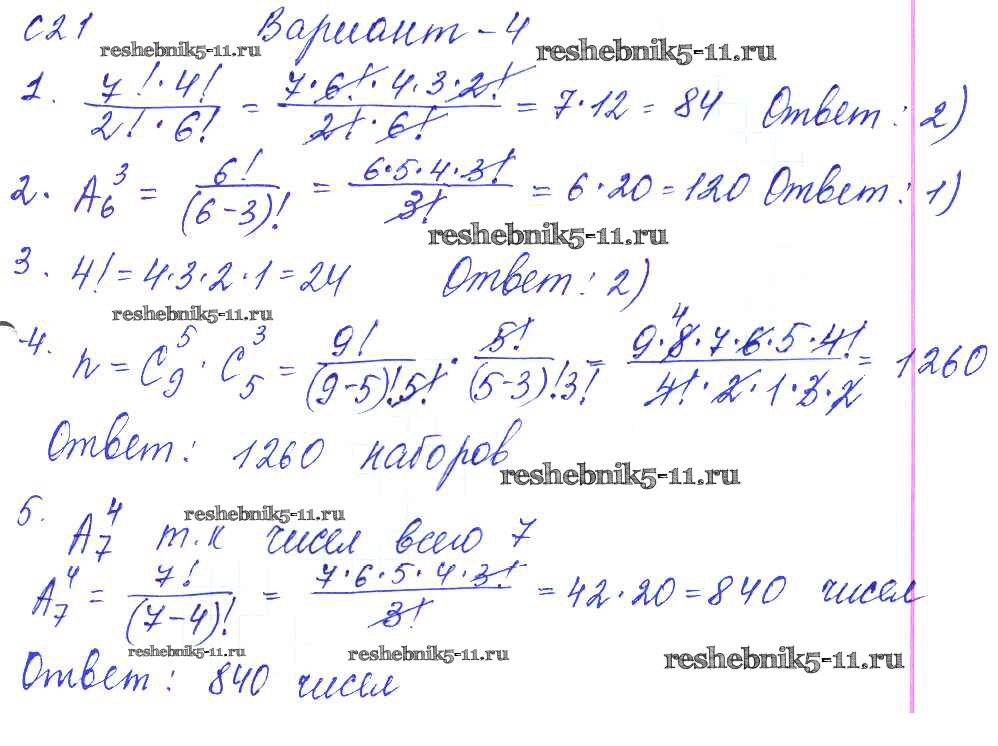 С21 Вариант-4
reshebnik5-11.ru reshebnik5-11.ru
1. 7!·4! / 2!·6! = 7·6!·4·3·2! / 2!·6! = 7·12 = 84 Ответ: 2)
2. A₆³ = 6! / (6-3)! = 6·5·4·3! / 3! = 6·20 = 120 Ответ: 1)
reshebnik5-11.ru
3. 4! = 4·3·2·1 = 24 Ответ: 2)
reshebnik5-11.ru
4. n = C₉⁵ · C₅³ = 9! / (9-5)!5! · 5! / (5-3)!3! = 9·8·7·6·5·4! / 4!·2·1·3·2 = 1260
4
Ответ: 1260 наборов
reshebnik5-11.ru
5. A₇⁴ т.к чисел всего 7
reshebnik5-11.ru
A₇⁴ = 7! / (7-4)! = 7·6·5·4·3! / 3! = 42·20 = 840 чисел
reshebnik5-11.ru reshebnik5-11.ru reshebnik5-11.ru
Ответ: 840 чисел